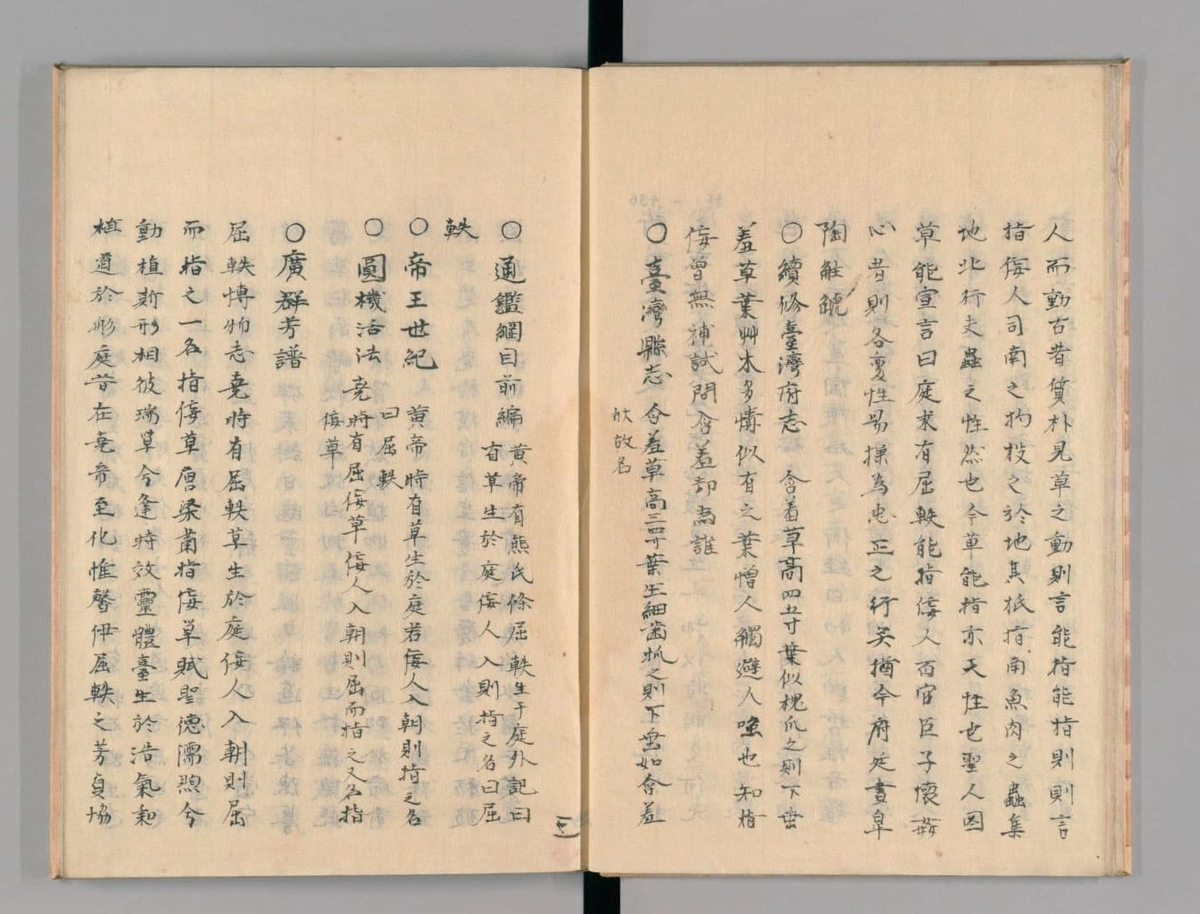 人而動古昔質朴見草之動則言能指能指則則言
指侫人司南之杓投之於地其柢指南魚肉之蟲集
地北行夫蟲之性然也今草能指亦天性也聖人因
草能宣言曰庭末有屈軼能指侫人百官臣子懷姦
心者則各変性易操為忠正之行矣猶今府廷畫皐
陶觟䚦
〇續修臺灣府志 含羞草高四五寸葉似槐爪之則下垂
羞草葉艸木多情似有之葉憎人觸避人嗤也知指
侫曾無補試問含羞却為誰
〇臺灣縣志 含羞草高三四寸葉生細齒抓之則下垂如含羞
狀故名
〇通鑑綱目前編 黄帝有熊氏條屈軼生于庭外記曰
有草生於庭侫人入則指之名曰屈
軼
〇帝王世紀 黄帝時有草生於庭若侫人入朝則指之名
曰屈軼
〇圓機活法 尭時有屈侫草侫人入朝則屈而指之又名指
侫草
〇廣群芳譜
屈軼愽物志尭時有屈軼草生於庭侫人入朝則屈
而指之一名指侫草唐梁肅指侫草賦聖德濡煦兮
動植斯形相彼瑞草兮逢時效靈體臺生於浩氣和
植遵於彤庭昔在尭帝至化惟馨伊屈軼之芳貞協